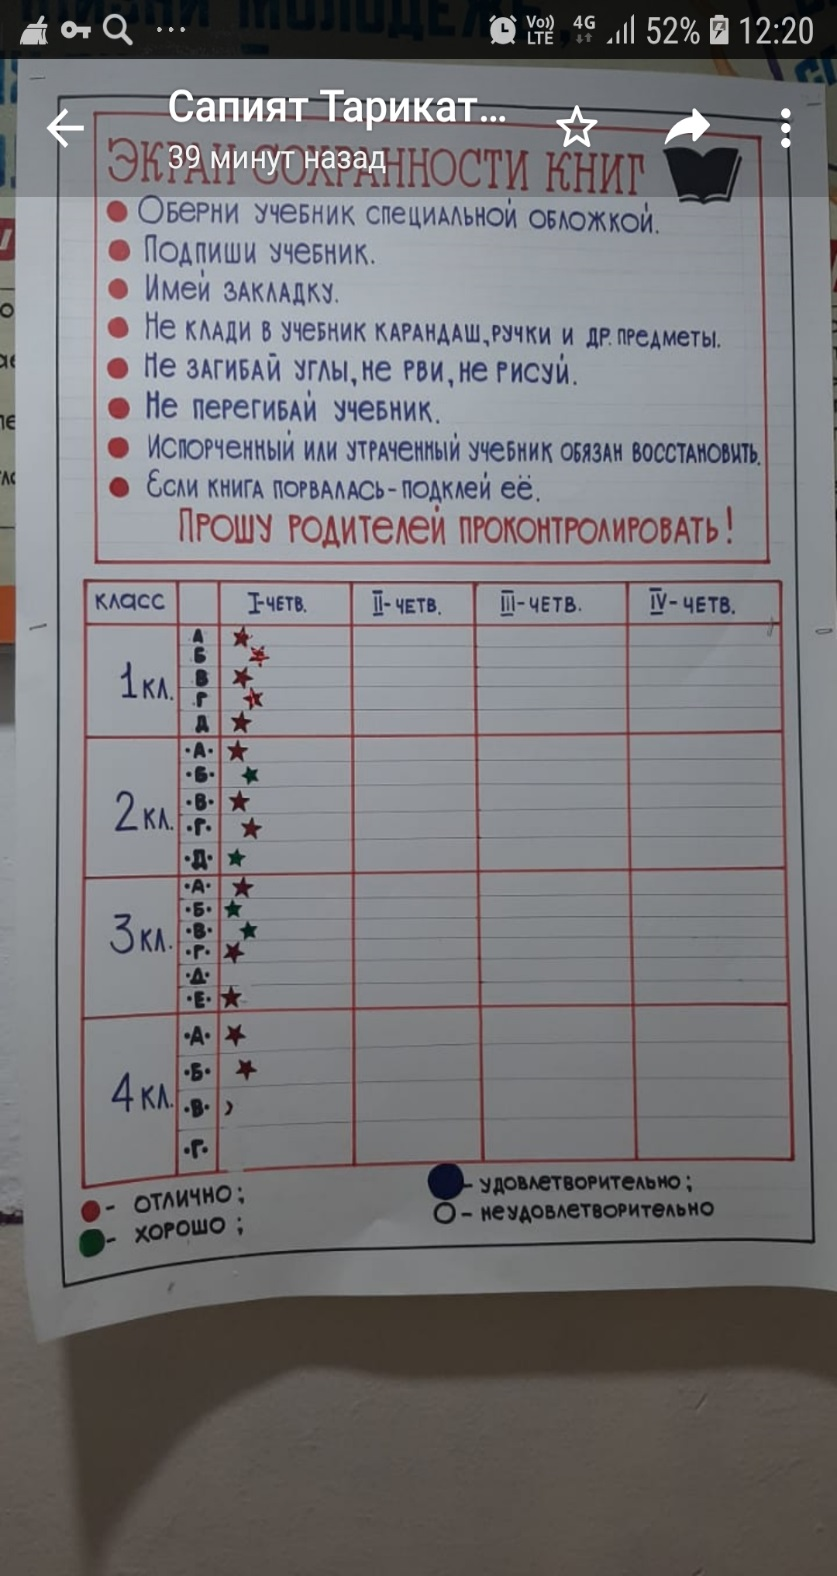 Vo)) LTE 4G 52% 12:20
Сапият Тарикат...
39 минут назад
ЭКРАН СОХРАННОСТИ КНИГ
Оберни учебник специальной обложкой.
Подпиши учебник.
Имей закладку.
Не клади в учебник карандаш, ручки и др. предметы.
Не загибай углы, не рви, не рисуй.
Не перегибай учебник.
Испорченный или утраченный учебник обязан восстановить.
Если книга порвалась - подклей её.
Прошу родителей проконтролировать!
класс I-четв. II-четв. III-четв. IV-четв.
1кл.
А
Б
В
Г
Д
2кл.
·А·
·Б·
·В·
·Г·
·Д·
3кл.
·А·
·Б·
·В·
·Г·
·Д·
·Е·
4кл.
·А·
·Б·
·В·
·Г·
- отлично;
- хорошо;
- удовлетворительно;
- неудовлетворительно